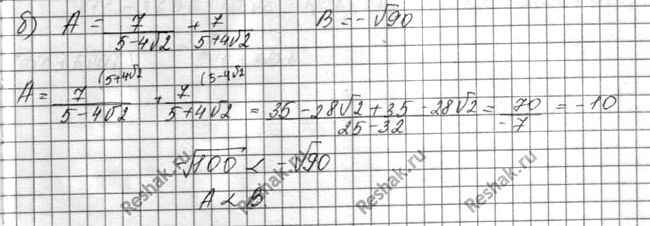 б) A = 7/(5-4√2) + 7/(5+4√2)   B = -√90
A = 7/(5-4√2) (5+4√2 + 7/(5+4√2) (5-4√2 = (35 - 28√2 + 35 - 28√2)/(25-32) = 70/-7 = -10
√100 < -√90
A < B
Reshak.ru Reshak.ru Reshak.ru Reshak.ru